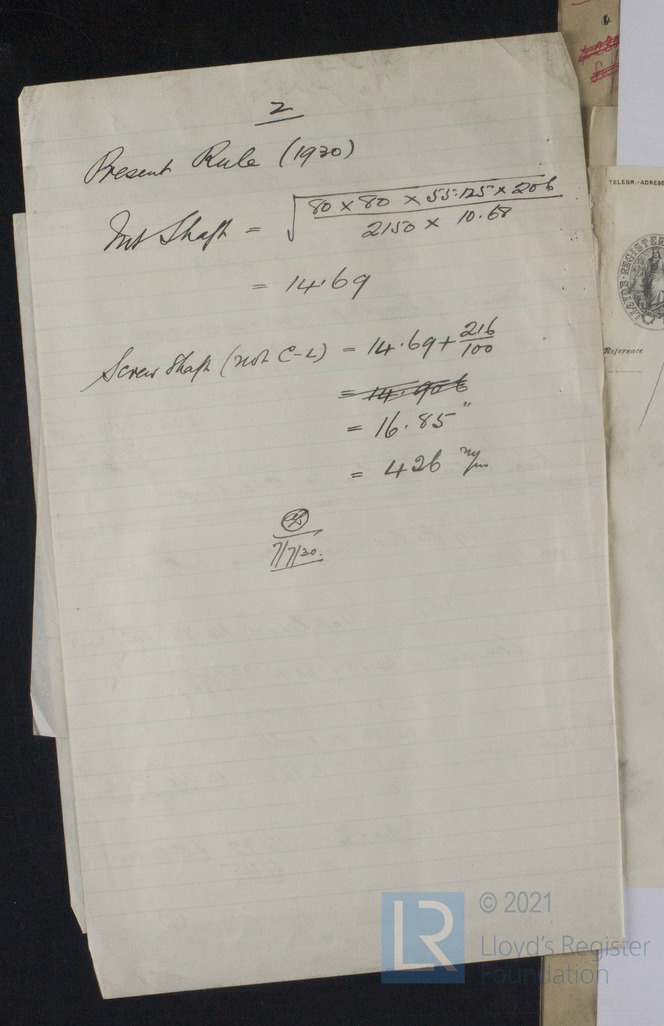 2
Present Rule (1930)
Int Shaft = √ 80 × 80 × 55.125 × 206
2150 × 10.68
= 14.69
Screw Shaft (not C-L) = 14.69 + 216/100
= 14.906
= 16.85"
= 426 m/m
7/7/30.
TELEGR.-ADRESS
Reference
LR
© 2021
Lloyd's Register
Foundation